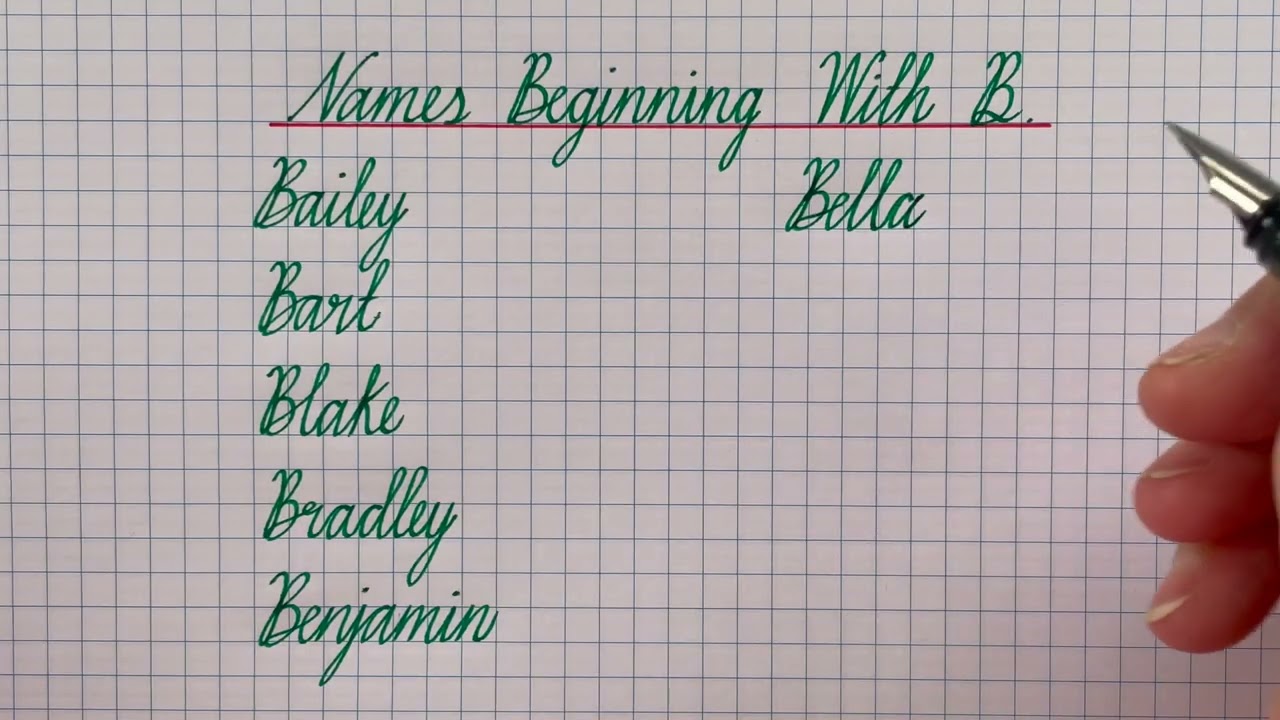 Names Beginning With B.
Bailey
Bart
Blake
Bradley
Benjamin
Bella